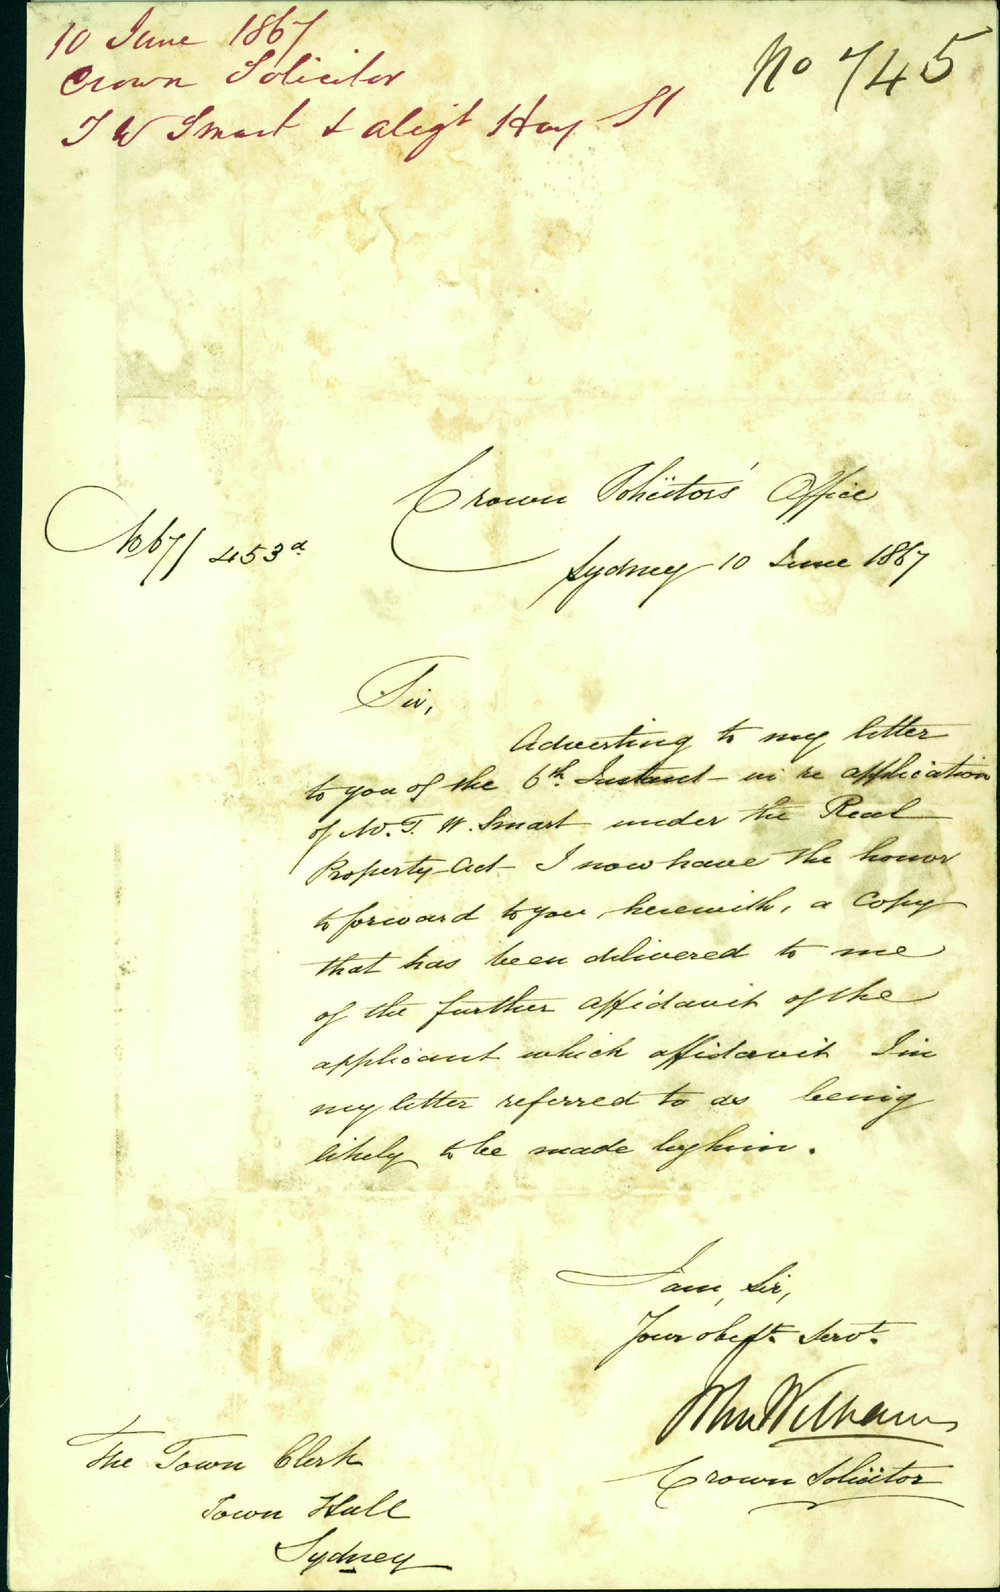 10 June 1867
Crown Solicitor
T W Smart & alig't Hay St
No 745
Crown Solicitors' Office
No 67/453a
Sydney 10 June 1867
Sir,
Adverting to my letter
to you of the 6th. Instant - in re application
of Mr. T. W. Smart under the Real
Property Act - I now have the honor
to forward to you herewith, a Copy
that has been delivered to me
of the further affidavit of the
applicant which affidavit I in
my letter referred to as being
likely to be made by him.
I am, Sir,
Your obedt. Servt.
John Williams
Crown Solicitor
The Town Clerk
Town Hall
Sydney